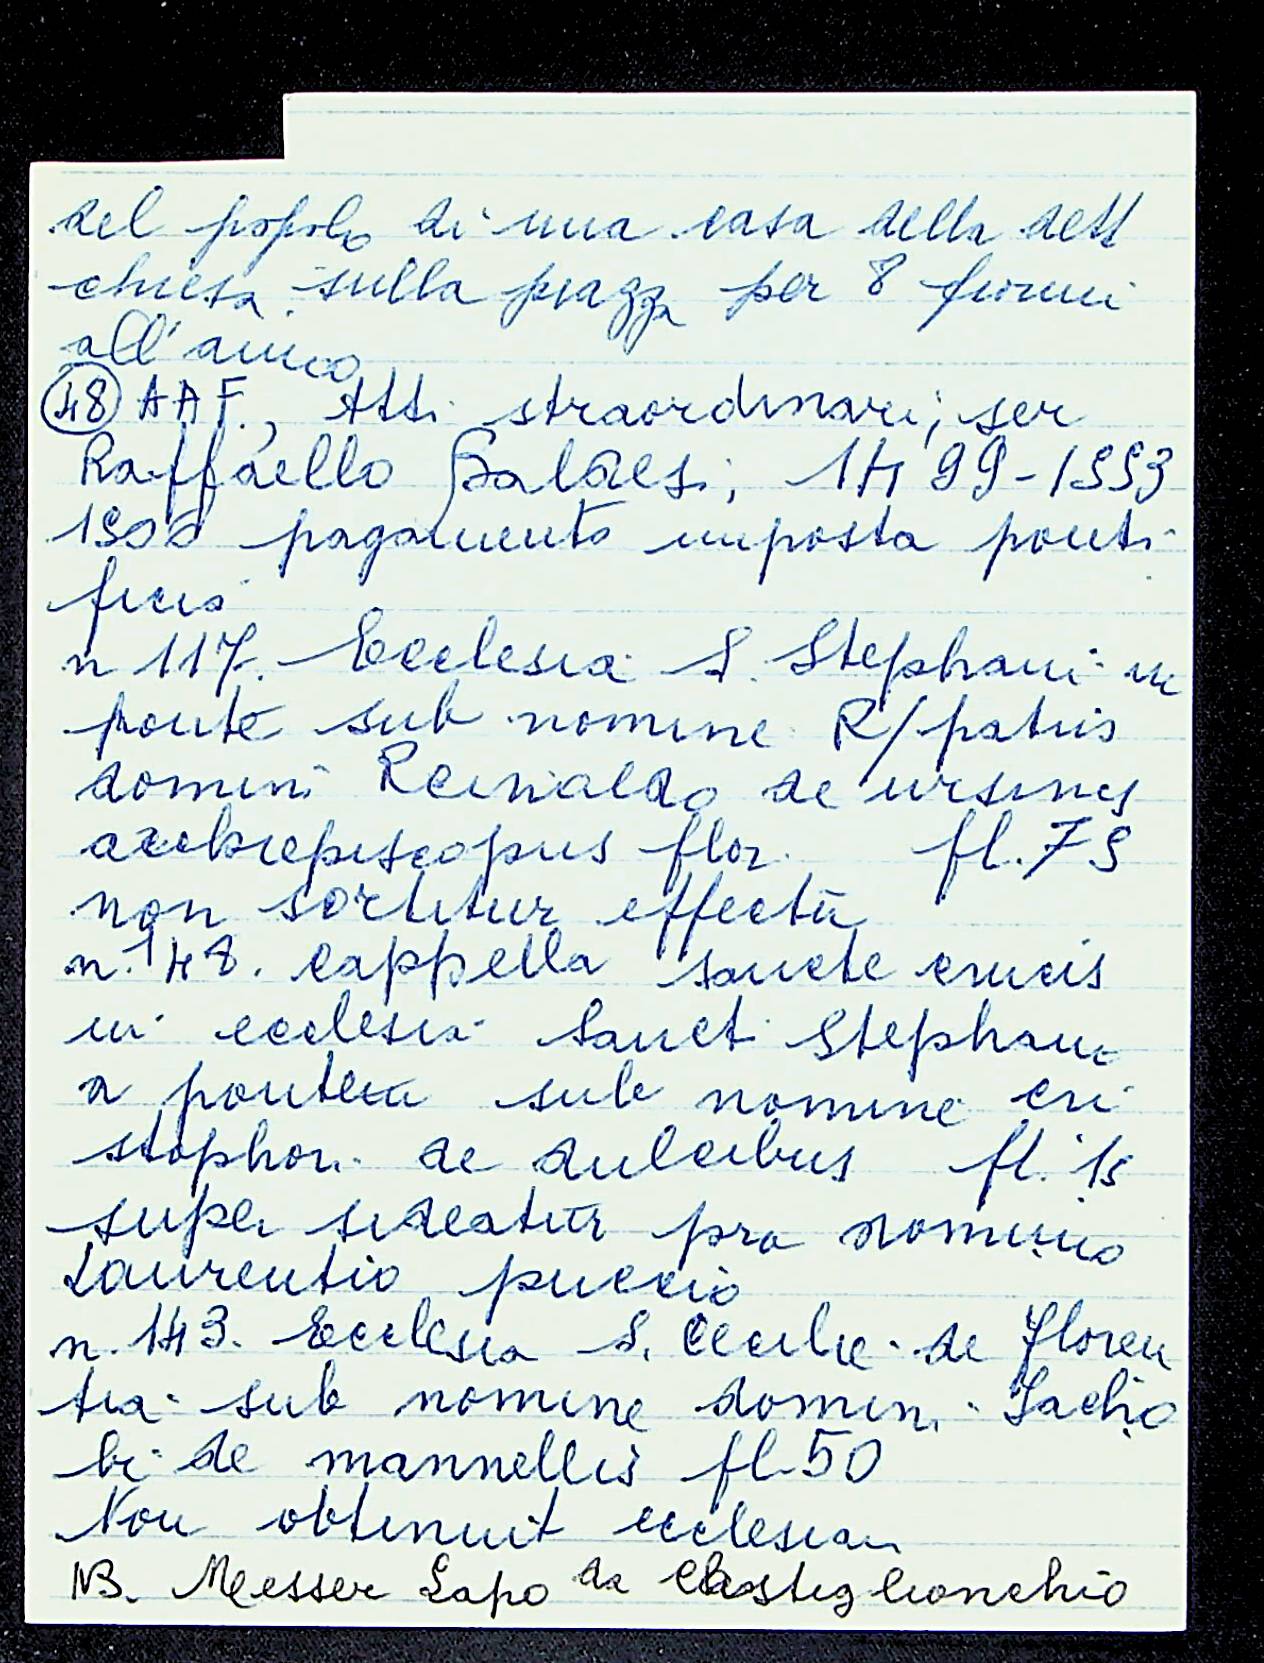 del popolo di una casa della dett
chiesa sulla piazza per 8 fiorini
all'anno
48 AAF., Atti straordinari, ser
Raffaello Baldesi, 1499-1553
1500 pagamento imposta ponti
ficia
n 117. Ecclesia S. Stephani in
ponte sub nomine R/patris
domini Reinaldo de ursinis
archiepiscopus flor. fl. 75
non sortitur effectū
n. 148. cappella sancte crucis
in ecclesia Sancti Stephani
a pontem sub nomine cri
stophori de dulcibus fl. 15
super sedeatur pro domino
Laurentio puccio
n. 143. Ecclesia S. Cecilie de Floren
tia sub nomine domini Jacho
bi de mannellis fl. 50
Non obtinuit ecclesiam
NB. Messer Lapo da Castiglionchio